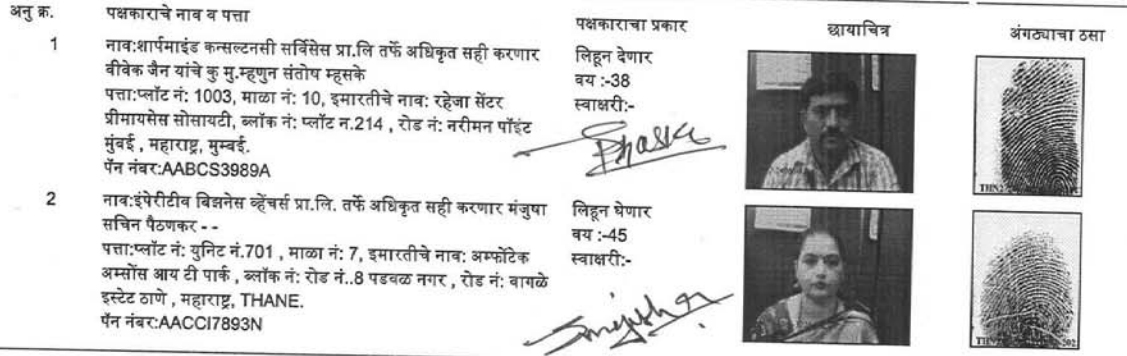 अनु क्र. पक्षकाराचे नाव व पत्ता पक्षकाराचा प्रकार छायाचित्र अंगठ्याचा ठसा
1 नाव:शार्पमाइंड कन्सल्टनसी सर्विसेस प्रा.लि तर्फे अधिकृत सही करणार
वीवेक जैन यांचे कु मु.म्हणुन संतोष म्हसके
पत्ता:प्लॉट नं: 1003, माळा नं: 10, इमारतीचे नाव: रहेजा सेंटर
प्रीमायसेस सोसायटी, ब्लॉक नं: प्लॉट न.214 , रोड नं: नरीमन पॉइंट
मुंबई , महाराष्ट्र, मुम्बई.
पॅन नंबर:AABCS3989A
लिहून देणार
वय :-38
स्वाक्षरी:-
2 नाव:इंपेरीटीव बिझनेस व्हेंचर्स प्रा.लि. तर्फे अधिकृत सही करणार मंजुषा
सचिन पैठणकर - -
पत्ता:प्लॉट नं: युनिट नं.701 , माळा नं: 7, इमारतीचे नाव: अम्फोंटेक
अम्सोंस आय टी पार्क , ब्लॉक नं: रोड नं..8 पडवळ नगर , रोड नं: वागळे
इस्टेट ठाणे , महाराष्ट्र, THANE.
पॅन नंबर:AACCI7893N
लिहून घेणार
वय :-45
स्वाक्षरी:-